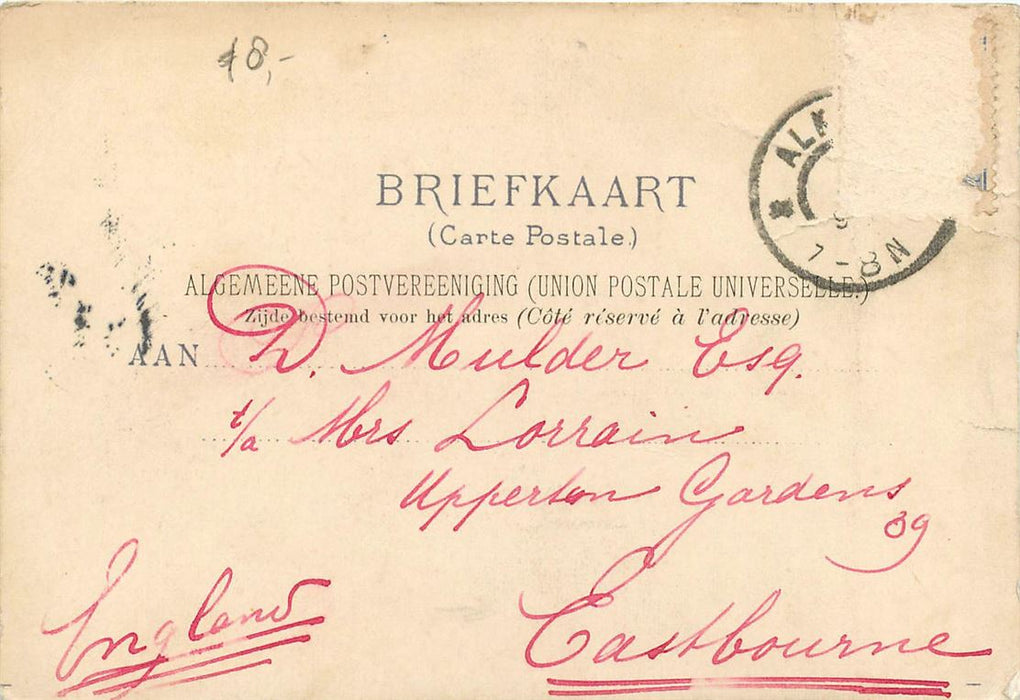 18,-
BRIEFKAART
(Carte Postale.)
ALGEMEENE POSTVEREENIGING (UNION POSTALE UNIVERSELLE.)
Zijde bestemd voor het adres (Côté réservé à l'adresse)
AAN D. Mulder Esq.
t/a Mrs Lorrain
Upperton Gardens
39
England
Eastbourne
7-8N